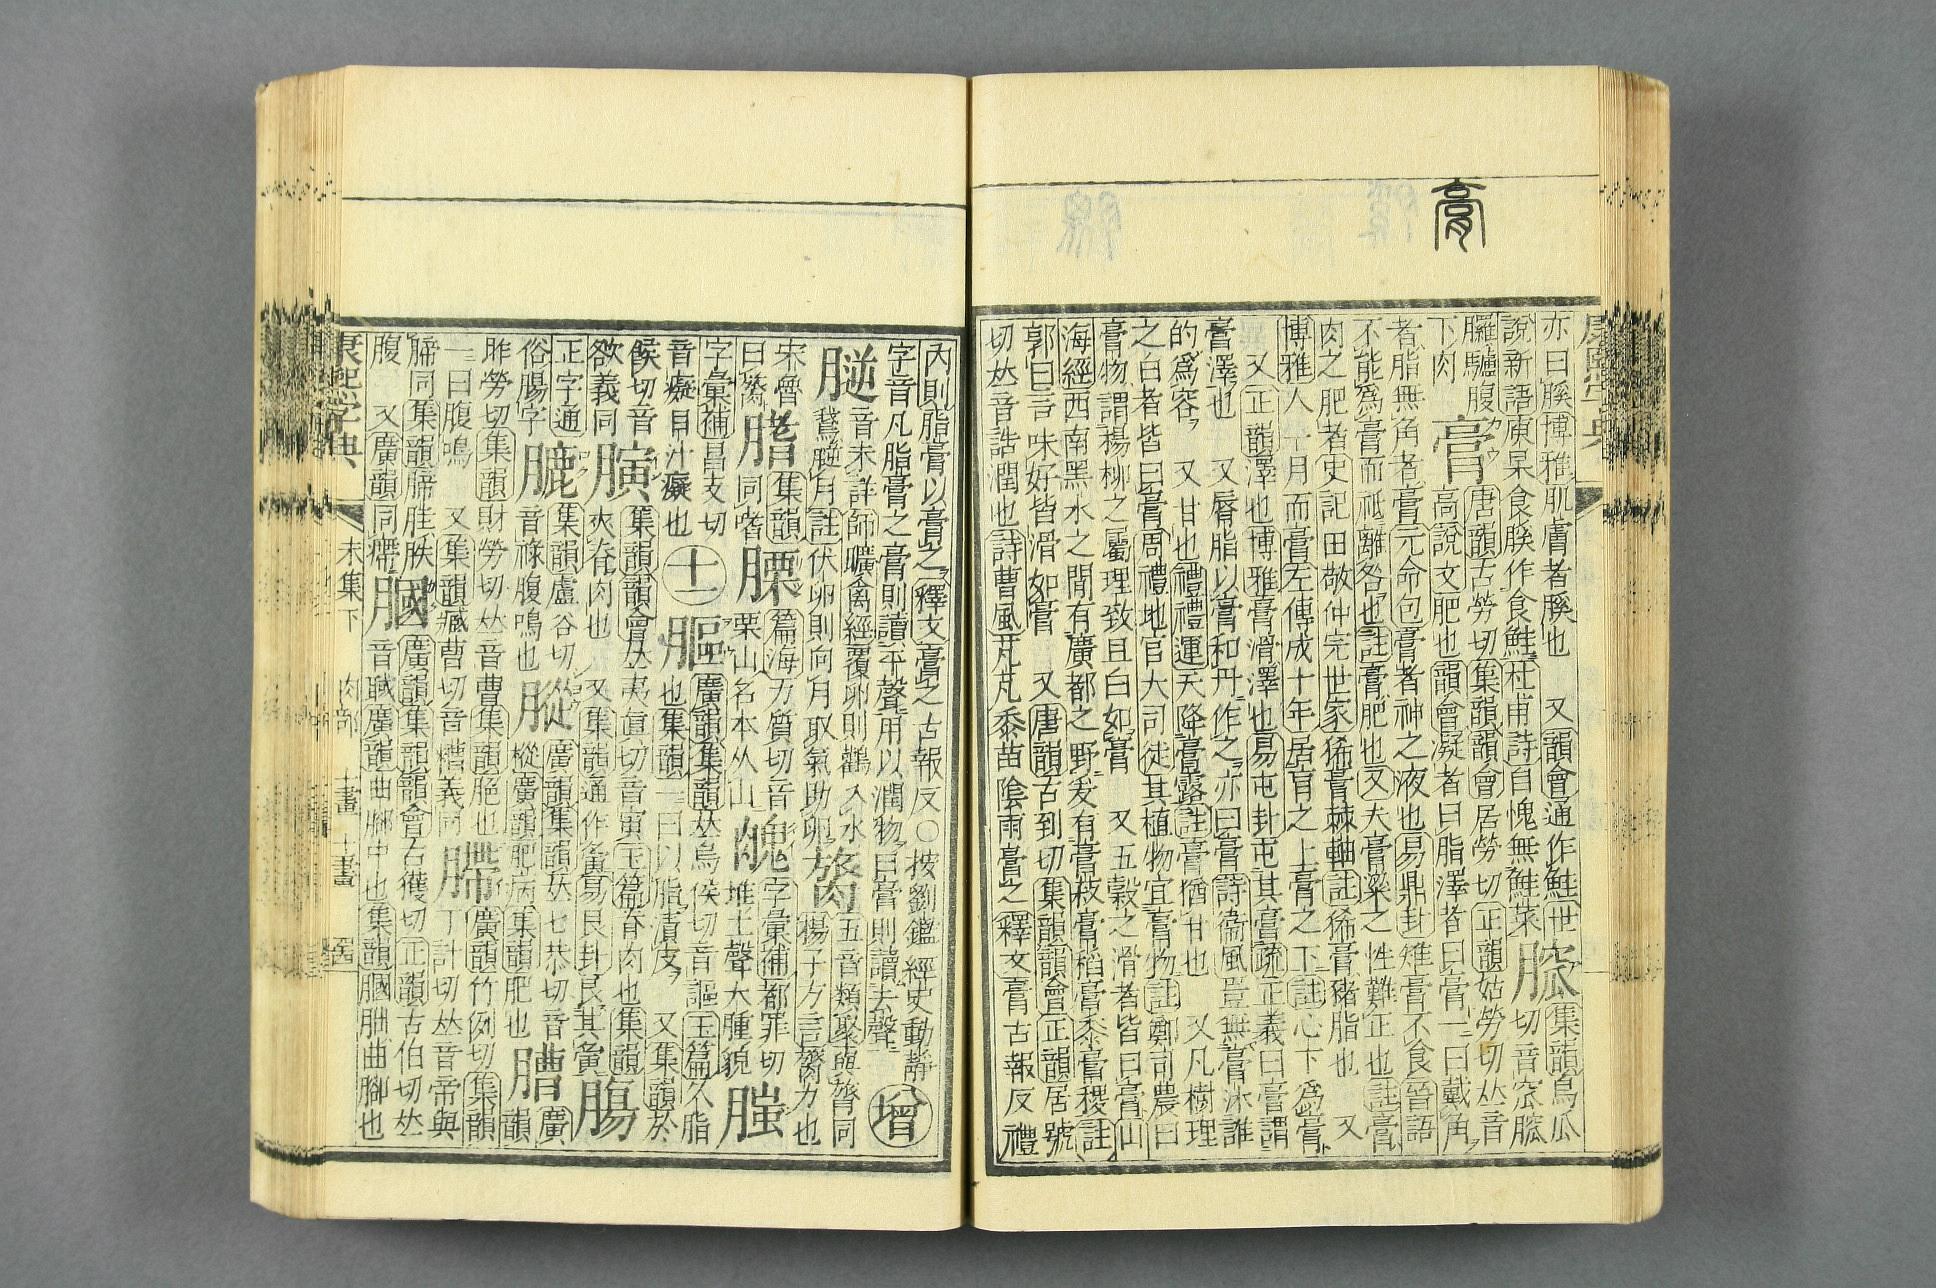 膏
亦曰膎博雅肌膚者膎也 又韻會通作鮭世
說新語庾杲食膎作食鮭杜甫詩自愧無鮭菜 集韻烏瓜
切音窊
膏 唐韻古勞切集韻韻會居勞切正韻姑勞切𠀤音
高說文肥也韻會凝者曰脂澤者曰膏一曰戴角
者脂無角者膏元命包膏者神之液也易鼎卦雉膏不食晉語
不能爲膏而祗離咎也註膏肥也又大膏粱之性難正也註膏
肉之肥者史記田敬仲完世家狶膏棘軸註狶膏豬脂也 又
博雅人一月而膏左傳成十年居肓之上膏之下註心下爲膏
又正韻澤也博雅膏滑澤也易屯卦屯其膏疏正義曰膏謂
膏澤也 又脣脂以膏和丹作之亦曰膏詩衞風豈無膏沐誰
的爲容 又甘也禮禮運天降膏露註膏猶甘也 又凡樹理
之白者皆曰膏周禮地官大司徒其植物宜膏物註鄭司農曰
膏物謂楊柳之屬理致且白如膏 又五穀之滑者皆曰膏山
海經西南黑水之閒有廣都之野爰有膏菽膏稻膏黍膏稷註
郭曰言味好皆滑如膏 又唐韻古到切集韻韻會正韻居號
切𠀤音誥潤也詩曹風芃芃黍苗陰雨膏之釋文膏古報反禮
內則脂膏以膏之釋文膏之古報反○按劉鑑經史動靜
字音凡脂膏之膏則讀平聲用以潤物曰膏則讀去聲 增
膖 音未詳師曠禽經覆卵則鸛入水
月註伏卵則向月取氣助卵 五音類聚與膂同
宋魯
曰膂
膱同 集韻
膟 篇海力質切音
栗山名本从山 字彙補都罪切
堆上聲大腫貌
字彙補昌支切
音癡目汁癡也
十一
膒 廣韻集韻𠀤烏侯切音謳玉篇久脂
也集韻一曰以脂漬皮 又集韻於
候切音
欲義同
䐲 集韻韻會𠀤夷眞切音寅玉篇脊肉也集韻
夾脊肉也 又集韻通作夤易艮卦艮其夤
膓
正字通
俗腸字
膔 集韻盧谷切
音祿腹鳴也
廣韻集韻𠀤七恭切音
樅廣韻肥病集韻肥也
膤 廣韻
昨勞切集韻財勞切𠀤音曹集韻脃也
一曰腹鳴 又集韻臧曹切音糟義同
廣韻竹例切集韻
丁計切𠀤音帝與
腣同集韻
腹 又廣韻同
膕 廣韻集韻韻會古獲切正韻古伯切𠀤
音聝廣韻曲腳中也集韻膕 曲腳也
康熙字典
未集下
肉部
十畫
十一畫